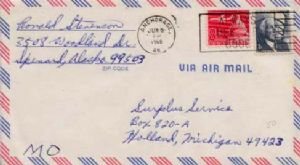 Ronald Stevenson
2508 Woodland Dr.
Spenard, Alaska 99503
ZIP CODE
ANCHORAGE,
JUN
PM
1968
VIA AIR MAIL
Surplus Service
Box 820-A
Holland, Michigan 49423
MO